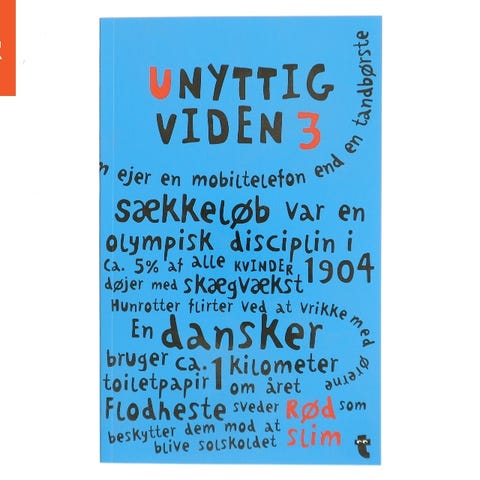 UNYTTIG
VIDEN 3
n ejer en mobiltelefon end en tandbørste
sækkeløb var en
olympisk disciplin i
1904
Ca. 5% af alle KVINDER
døjer med skægvækst
Hunrotter flirter ved at vrikke med ørerne
En dansker
bruger ca. 1 kilometer
toiletpapir om året
Flodheste sveder RØD som
beskytter dem mod at slim
blive solskoldet